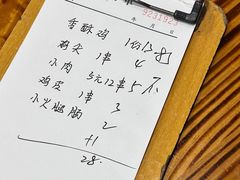 年 月 日
3231923
香酥鸡 1份13
鸡尖 1串 4
小肉 5元12串5
鸡皮 1串 3
小火腿肠 2
+1
28.